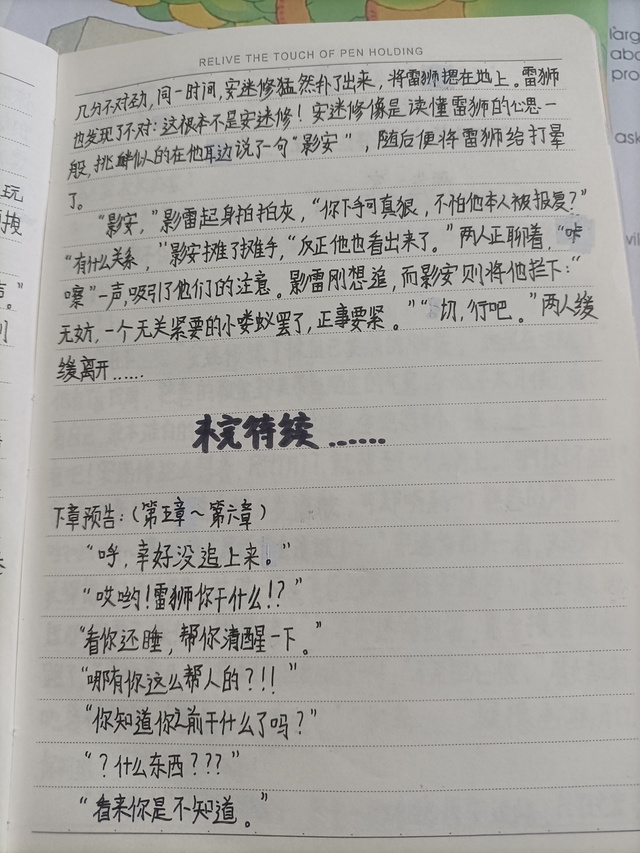 RELIVE THE TOUCH OF PEN HOLDING
几分不对劲,同一时间,安迷修猛然扑了出来,将雷狮摁在地上。雷狮
也发现了不对:这根本不是安迷修!安迷修像是读懂雷狮的心思一
般,挑衅似的在他耳边说了一句“影安”,随后便将雷狮给打晕
了。
“影安,”影雷起身拍拍灰,“你下手可真狠,不怕他本人被报复?”
“有什么关系,”影安摊了摊手,“反正他也看出来了。”两人正聊着,“咔
嚓”一声,吸引了他们的注意。影雷刚想追,而影安则将他拦下:“
无妨,一个无关紧要的小喽蚁罢了,正事要紧。”“切,行吧。”两人缓
缓离开……
未完待续……
下章预告:(第五章~第六章)
“呼,幸好没追上来。”
“哎哟!雷狮你干什么!?”
“看你还睡,帮你清醒一下。”
“哪有你这么帮人的?!!”
“你知道你之前干什么了吗?”
“?什么东西???”
“看来你是不知道。”
玩
搜
。”
larg
abo
pro
ask
wi